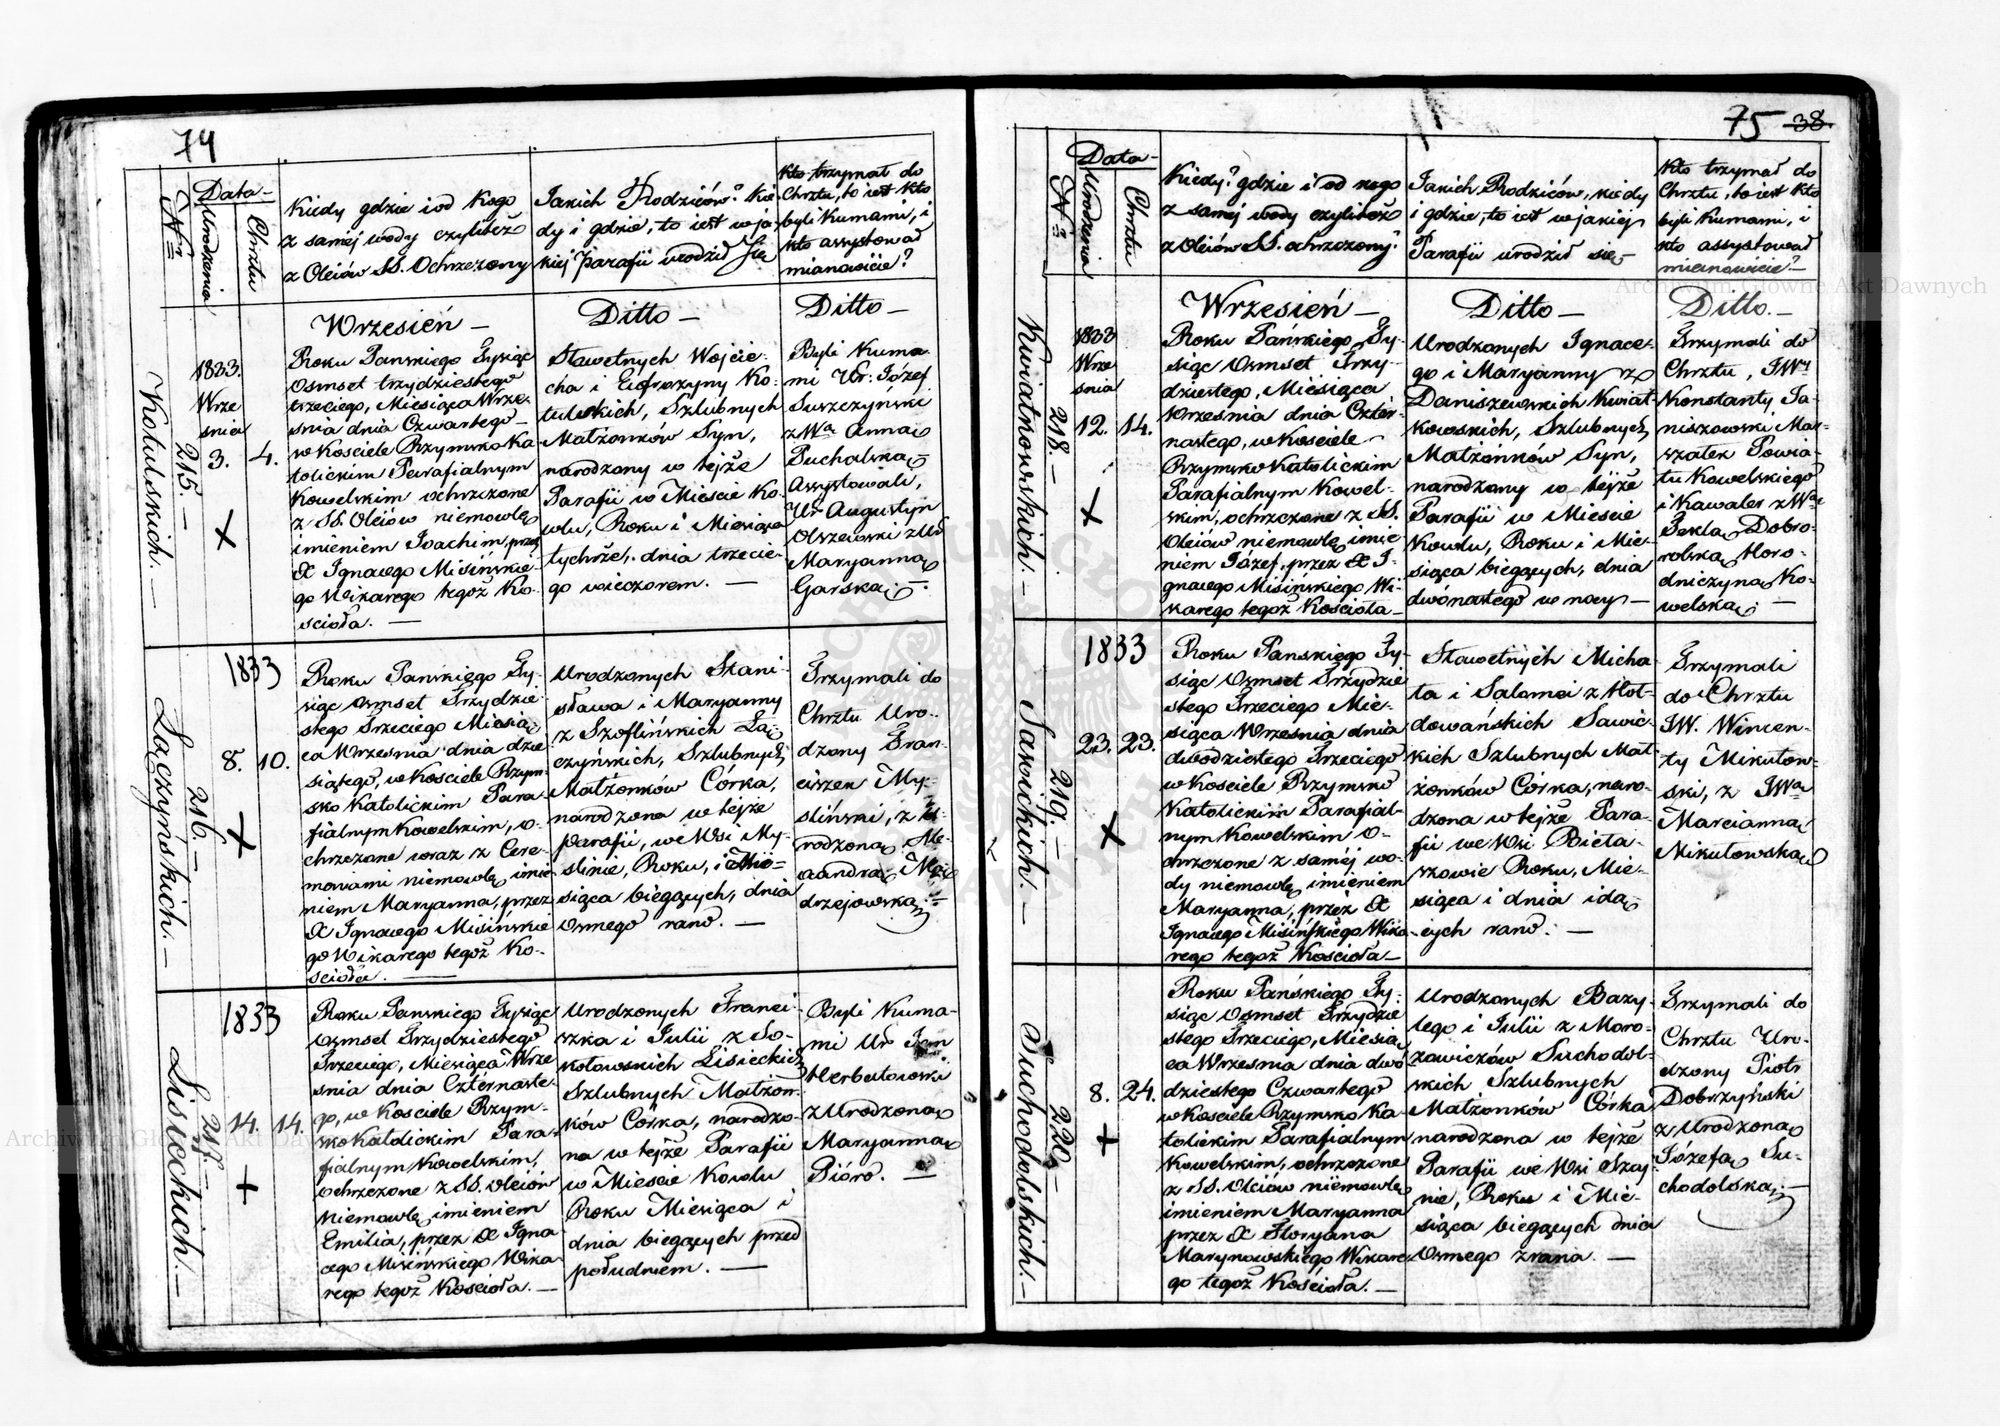 74
Data
Nr
Urodzenia
Chrztu
Kiedy gdzie i od Kogo
z saméj wody czyliteż
z Oleiów SS. Ochrzczony
Jakich Rodziców? kie
dy i gdzie, to iest w ja
kiéj Parafii urodził Się
Kto trzymał do
Chrztu, to iest kto
byli Kumami, i
kto assystował
mianowicie?
Kotulskich. —
215. —
1833.
Wrze
snia
3.
4.
Wrzesień —
Roku Panskiego Tysiąc
Osmset trzydziestego
trzeciego, Miesiąca Wrze-
snia dnia Czwartego
w Kosciele Rzymsko Ka
tolickim Parafialnym
Kowelskim ochrzczone
z SS. Oleiów niemowlę
imieniem Joachim, przez
X Ignacego Misińskie
go Wikarego tegoż Ko-
scioła. —
Ditto —
Sławetnych Wojcie-
cha i Eufrozyny Ko-
tulskich, Szlubnych
Matżonków Syn,
narodzony w tejże
Parafii w Miescie Ko-
wlu, Roku i Miesiąca
tychże, dnia trzecie-
go wieczorem. —
Ditto —
Byli Kuma
mi Ur: Józef
Suszczynski
z Wa Anna
Puchalska
Assystowali,
Ur Augustyn
Olszewski z Ur
Maryanna
Garska. —
Łączyńskich. —
216. —
1833
8.
10.
Roku Panskiego Ty-
siąc Osmset Trzydzie-
stego Trzeciego Miesią
ca Wrzesnia dnia dzie
siątego, w Kosciele Rzym-
sko Katolickim Para-
fialnym Kowelskim, o-
chrzczone wraz z Cere-
moniami niemowlę imie
niem Maryanna, przez
X Ignacego Misińskie
go Wikarego tegoż Ko-
scioła. —
Urodzonych Stani-
sława i Maryanny
z Szoflińskich Łą
czyńskich, Szlubnych
Matżonków Córka,
narodzona w tejże
Parafii, we Wsi My-
slinie, Roku, i Mie-
siąca bieżących, dnia
Osmego rano. —
Trzymali do
Chrztu Uro-
dzony Fran-
ciszek My-
śliński, z U-
rodzoną Ale-
xandrą
drzejowską. —
Lisieckich. —
217. —
1833
14.
14.
Roku Panskiego Tysiąc
Osmset Trzydziestego
Trzeciego, Miesiąca Wrze
snia dnia Czternaste-
go, w Kosciele Rzym-
sko Katolickim Para-
fialnym Kowelskim,
ochrzczone z SS. Oleiów
Niemowlę imieniem
Emilia, przez X Igna
cego Misińskiego Wika
rego tegoż Kościoła. —
Urodzonych Franci-
szka i Julii z So-
kołowskich Lisieckich
Szlubnych Matżon-
ków Córka, narodzo-
na w tejże Parafii
w Miescie Kowlu
Roku Miesiąca i
dnia bieżących przed
południem. —
Byli Kuma-
mi Ur Jan
Herbutowski
z Urodzoną
Maryanną
Pióro. —
75 38.
Data
Nr
Urodzenia
Chrztu
Kiedy? gdzie i od kogo
z saméj wody czyliteż
z Oleiów SS. ochrzczony?
Jakich Rodziców, kiedy
i gdzie, to iest w jakiej
Parafii urodził się —
Kto trzymał do
Chrztu, to iest kto
byli Kumami, i
kto assystował
mianowicie? —
Kwiatkowskich. —
218. —
1833
Wrze
snia
12.
14.
Wrzesień —
Roku Pańskiego Ty-
siąc Osmset Trzy-
dziestego, Miesiąca
Wrzesnia dnia Czter-
nastego, w Kosciele
Rzymsko Katolickim
Parafialnym Kowel-
skim, ochrzczone z SS.
Oleiów niemowlę imie
niem Józef, przez X I-
gnacego Misińskiego Wi-
karego tegoż Kościoła —
Ditto —
Urodzonych Ignace-
go i Maryanny z
Daniszewskich Kwiat-
kowskich, Szlubnych
Matżonków Syn,
narodzony w tejże
Parafii w Miescie
Kowlu, Roku i Mie-
siąca bieżących, dnia
dwónastego w nocy —
Ditto. —
Trzymali do
Chrztu, JWny
Konstanty Ja-
niszowski Mar-
szałek Powia-
tu Kowelskiego
i Kawaler z Wną
Teklą Dobro-
wolską Horo-
dniczyną Ko-
welską. —
Sawickich. —
219. —
1833
23.
23.
Roku Panskiego Ty-
siąc Osmset Trzydzie
stego Trzeciego Mie-
siąca Wrzesnia dnia
dwódziestego Trzeciego
w Kosciele Rzymsko
Katolickim Parafial-
nym Kowelskim o-
chrzczone z saméj wo-
dy niemowlę imieniem
Maryanna, przez X
Ignacego Misińskiego Wika-
rego tegoż Kościoła —
Sławetnych Micha
ła i Salomei z Hoł-
dowańskich Sawic-
kich Szlubnych Mat-
żonków Córka, naro-
dzona w tejże Para-
fii we Wsi Bieła-
szowie Roku, Mie-
siąca i dnia idą
cych rano. —
Trzymali
do Chrztu
JW. Wincen-
ty Mikułow-
ski, z JWną
Marcianną
Mikułowską
Suchodolskich. —
220. —
8.
24.
Roku Pańskiego Ty-
siąc Osmset Trzydzie
stego Trzeciego, Miesią
ca Wrzesnia dnia dwó
dziestego Czwartego
w Kosciele Rzymsko Ka
tolickim Parafialnym
Kowelskim, ochrzczone
z SS. Oleiów niemowlę
imieniem Maryanna
przez X Floryana
Marynowskiego Wikare
go tegoż Kościoła. —
Urodzonych Bazy-
lego i Julii z Moro-
zowiczów Suchodol-
skich Szlubnych
Matżonków Córka
narodzona w tejże
Parafii we Wsi Szaj-
nie, Roku i Mie-
siąca bieżących dnia
Osmego zrana. —
Trzymali do
Chrztu Uro-
dzony Piotr
Dobrzyński
z Urodzoną
Józefą Su-
chodolską. —
Archiwum Główne Akt Dawnych
Archiwum Główne Akt Dawnych